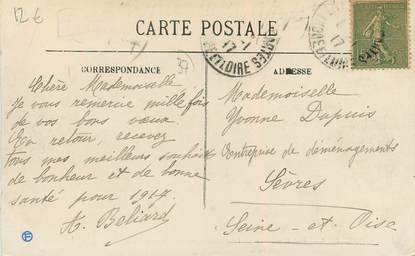 12 €
CARTE POSTALE
CORRESPONDANCE
Chère Mademoiselle
Je vous remercie mille fois
de vos bons vœux.
En retour, recevez
tous mes meilleurs souhaits
de bonheur et de bonne
santé pour 1917.
A. Beliard
ADRESSE
Mademoiselle
Yvonne Dapuis
Entreprise de déménagements
Sèvres
Seine-et-Oise
ET LOIRE